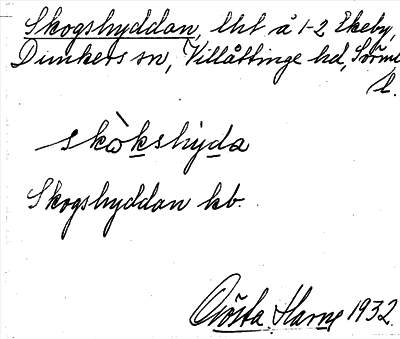 Skogshyddan, lht å 1-2 Ekeby,
Dunkers sn, Villåttinge hd, Sörml.
l.
skòkshyda
Skogshyddan kb.
Gösta Harne 1932.